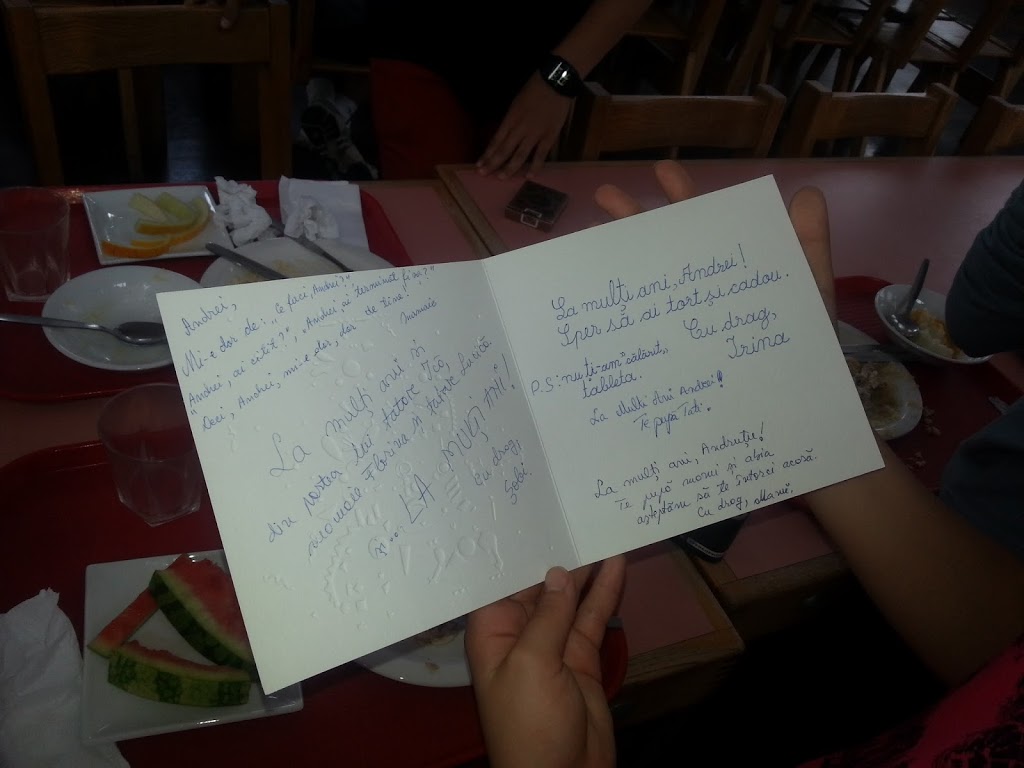 Andrei,
Mi-e dor de: „Ce faci, Andrei?"
"Andrei, ai citit?", "Andrei, ai terminat fina?"
Deci, Andrei, mi-e dor, dor de tine!
mamaie
La mulți ani și
din partea lui tataie Ică,
mamaie Florina și tataie
LA MULȚI ANI!
Cu drag,
Gabi
La mulți ani, Andrei!
Sper să ai tort și cadou.
Cu drag,
Irina
P.S: nu ți-am "călărit"
tableta.
La Multi Ani Andrei!
Te pupă Tati.
La mulți ani, Andruțu!
Te pupă mami și abia
așteptăm să te întorci acasă.
Cu drag, Mami.